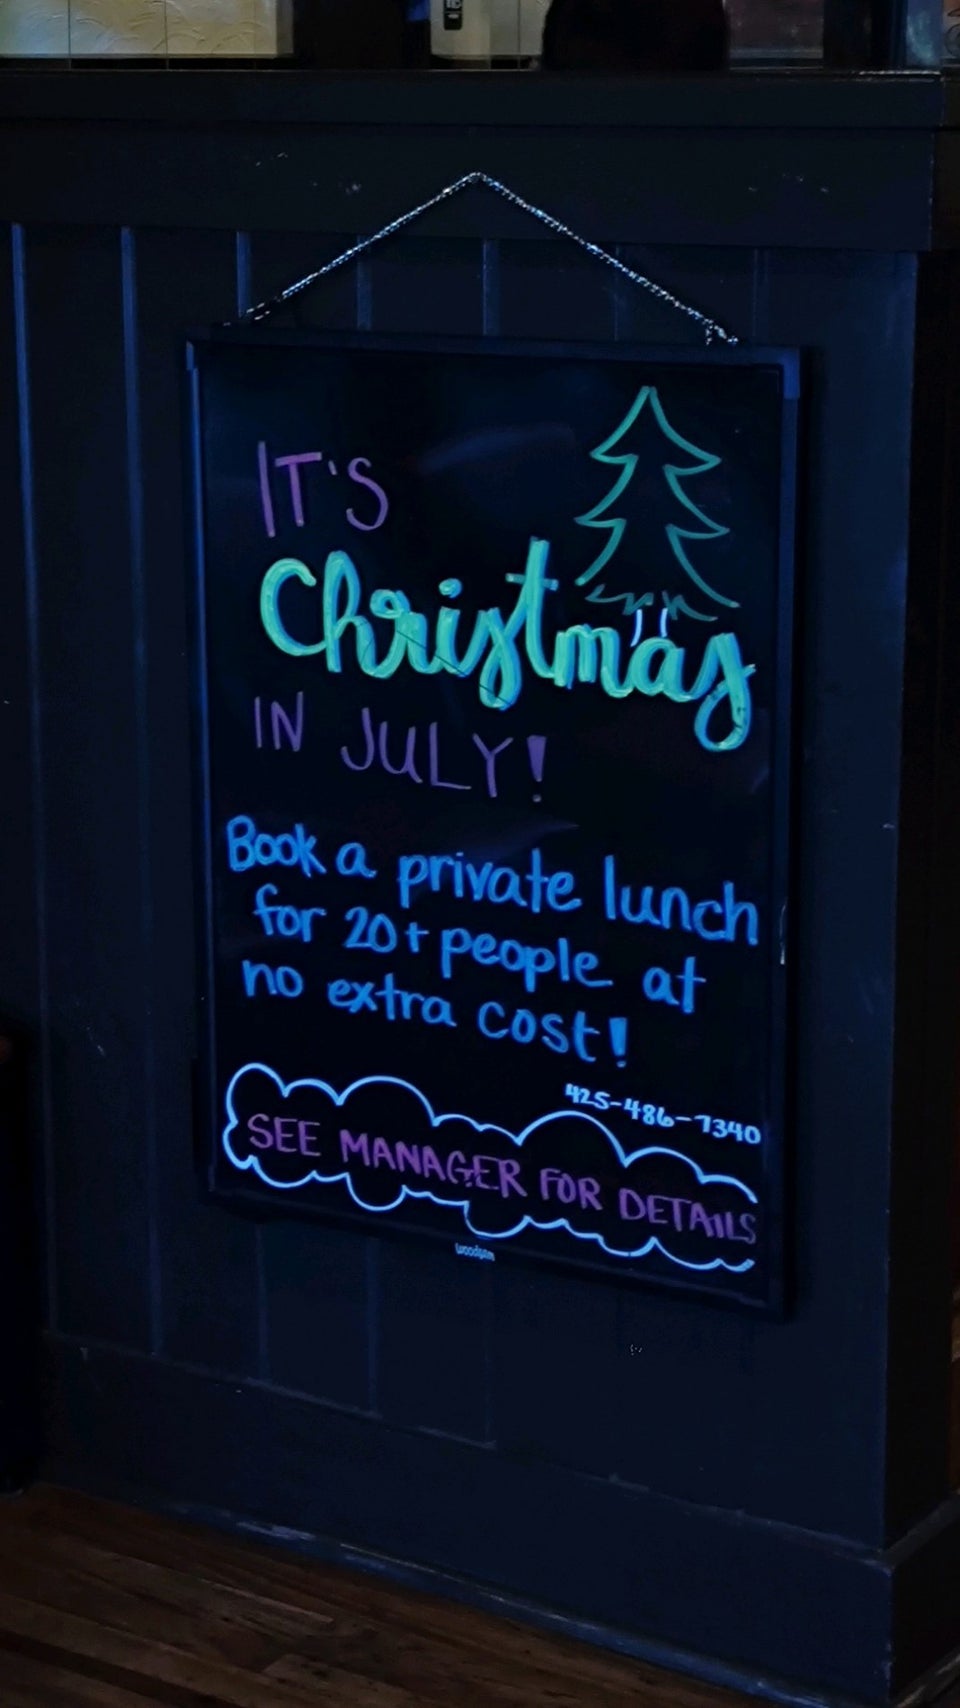 IT'S
Christmas
IN JULY!
Book a private lunch
for 20+ people at
no extra cost!
425-486-7340
SEE MANAGER FOR DETAILS